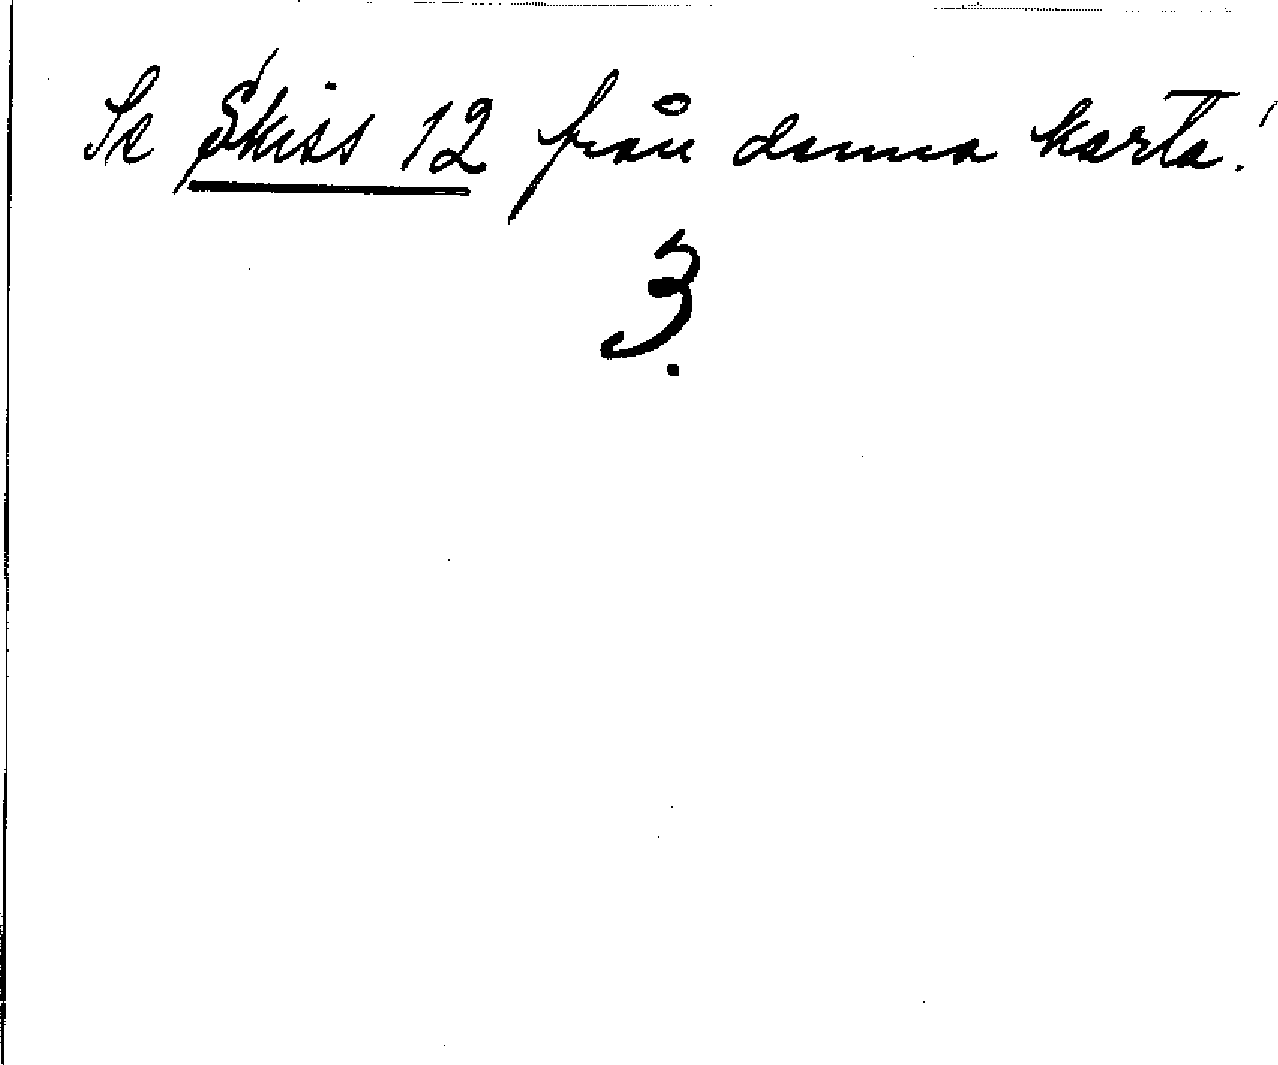 Se Skiss 12 från denna karta!
3.